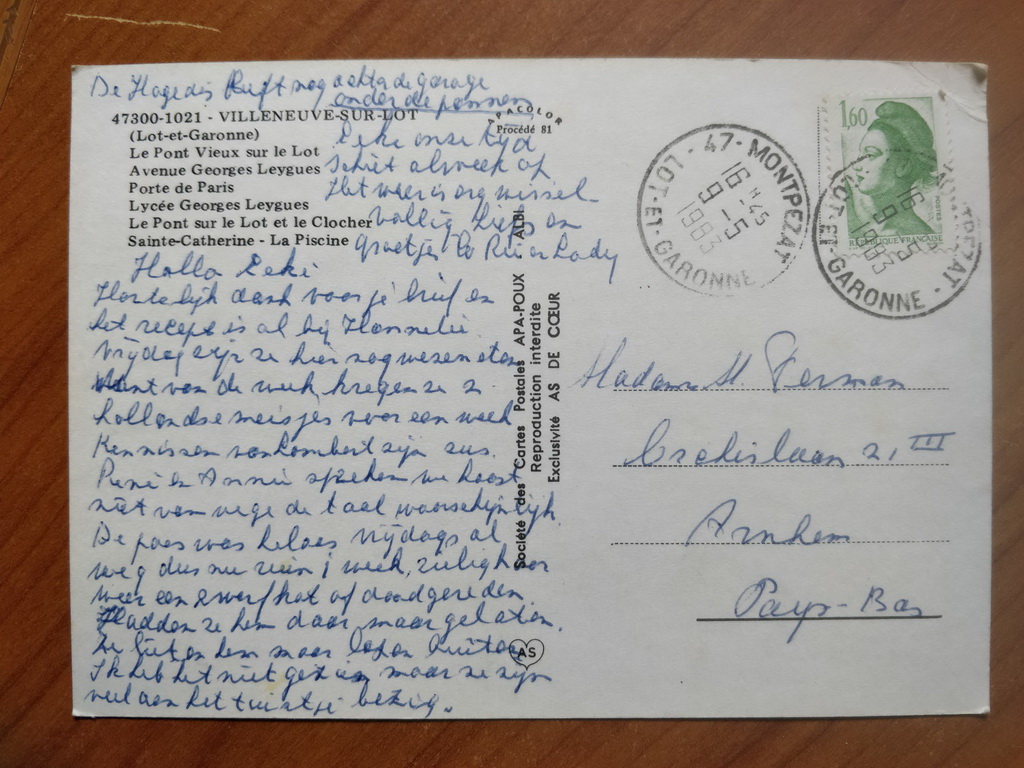 De Hagedis rust nog achter de garage
onder de pannen
47300-1021 - VILLENEUVE-SUR-LOT
(Lot-et-Garonne)
Le Pont Vieux sur le Lot
Avenue Georges Leygues
Porte de Paris
Lycée Georges Leygues
Le Pont sur le Lot et le Clocher
Sainte-Catherine - La Piscine
APACOLOR
Procédé 81
onze tijd
schiet al week op
Het weer is erg wissel-
vallig liefs en
groetjes Co Ria
Hallo
Hartelijk dank voor je brief en
het recept is al bij Hannelie
Vrijdag zijn ze hier nog wezen eten
want van de week kregen ze 2
hollandse meisjes voor een week
Kennissen van zijn zus.
en Annie spreken we haast
niet van wege de taal waarschijnlijk.
De poes was helaas vrijdags al
weg dus nu ruim 1 week, zielig hoor
weer een zwerfkat of doodgereden
Hadden ze hem daar maar gelaten.
Ze lieten hem maar lopen buiten
Ik heb het niet gezien maar ze zijn
veel aan het tuintje bezig.
Société des Cartes Postales APA-POUX ALBI
Reproduction interdite
Exclusivité AS DE CŒUR
AS
47 - MONTPEZAT
LOT-ET-GARONNE
16 H 45
9 - 5
1983
1,60
POSTES
REPUBLIQUE FRANCAISE
MONTPEZAT
LOT-ET-GARONNE
16
9 5
1983
Madame M. Perman
21 III
Arnhem
Pays-Bas